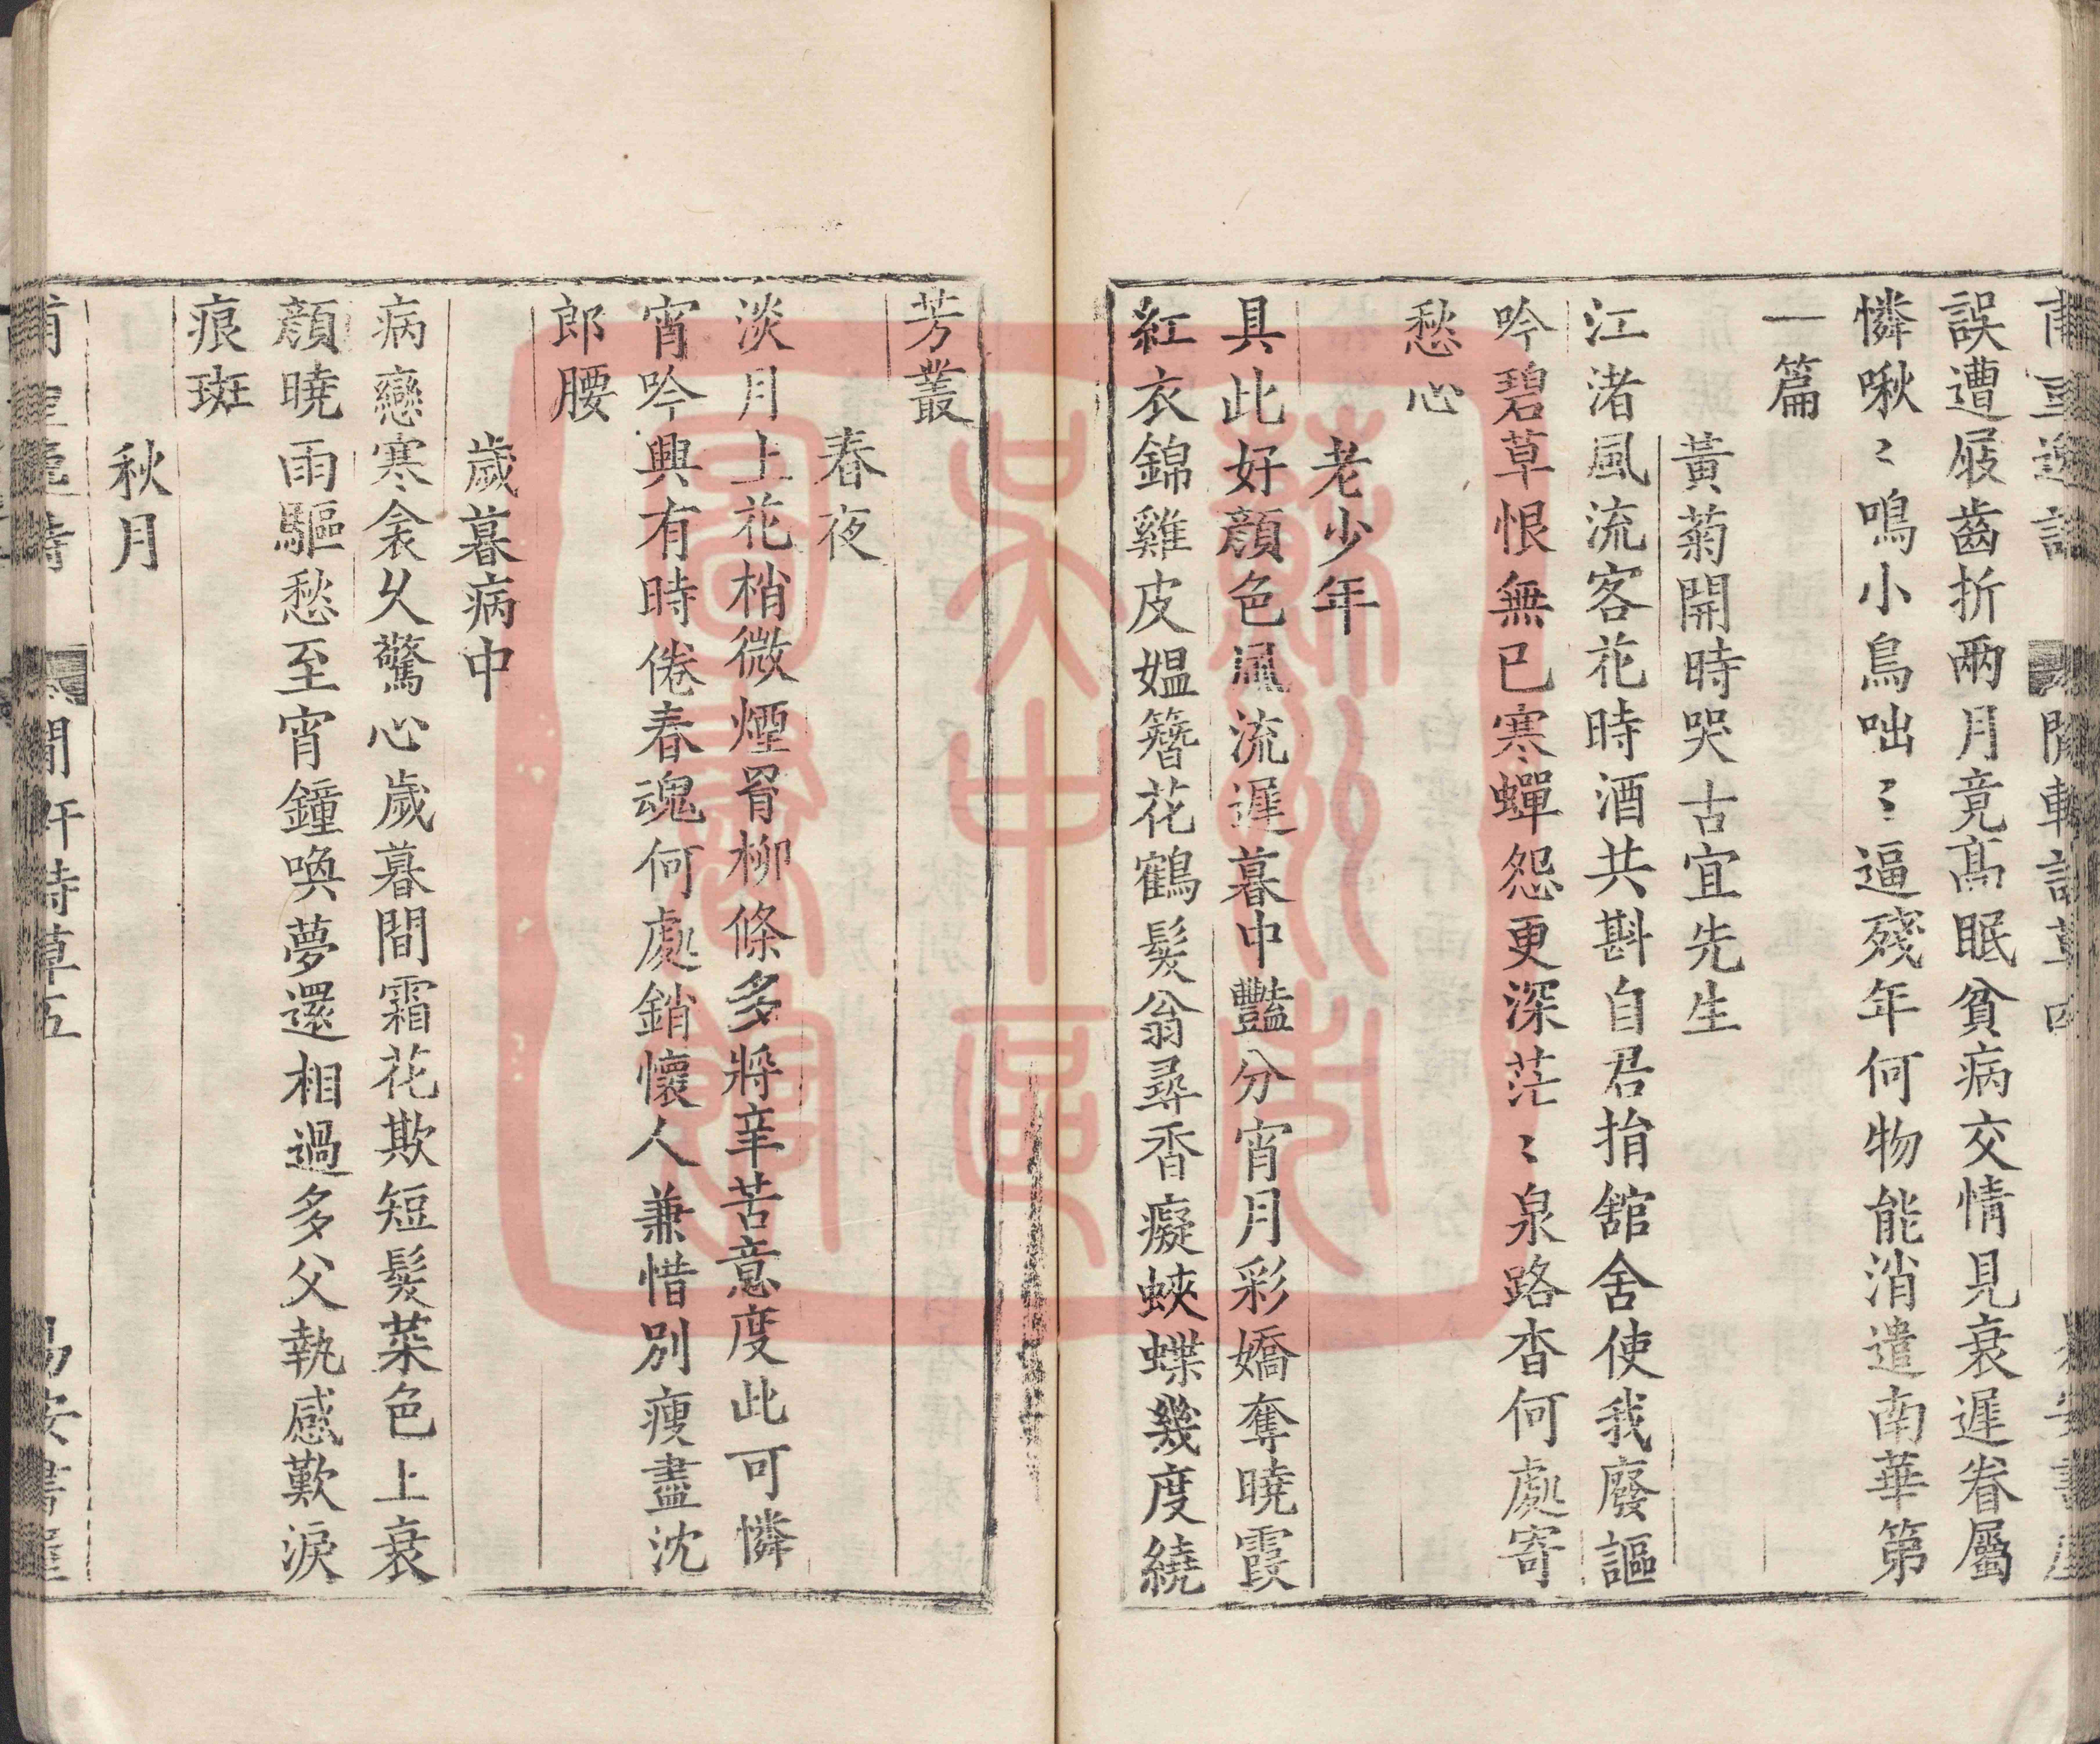 誤遭屐齒折兩月竟高眠貧病交情見衰遲眷屬
憐啾〻鳴小鳥咄〻逼殘年何物能消遣南華第
一篇
黃菊開時哭古宜先生
江渚風流客花時酒共斟自君捐舘舍使我廢謳
吟碧草恨無已寒蟬怨更深茫〻泉路杳何處寄
愁心
老少年
具此好顏色風流遲暮中豔分宵月彩嬌奪曉霞
紅衣錦雞皮媼簪花鶴髮翁尋香癡蛺蝶幾度繞
芳叢
春夜
淡月上花梢微煙罥柳條多將辛苦意度此可憐
宵吟興有時倦春魂何處銷懷人兼惜別瘦盡沈
郎腰
歲暮病中
病戀寒衾久驚心歲暮間霜花欺短髮菜色上衰
顏曉雨驅愁至宵鐘喚夢還相過多父執感歎淚
痕斑
秋月
閒軒詩草五